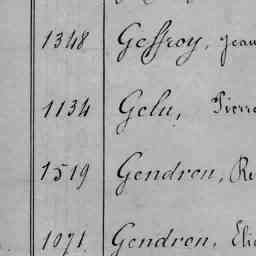 1348 Geffroy, Jean
1134 Gelu, Pierre
1519 Gendron, Re
1071 Gendron, Eli